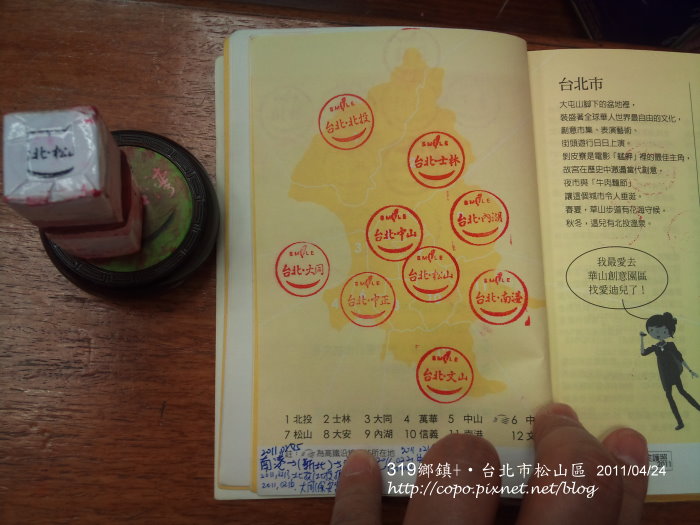 台北市
大屯山腳下的盆地裡，
裝盛著全球華人世界最自由的文化，
創意市集、表演藝術，
街頭遊行日日上演。
剝皮寮是電影「艋舺」裡的最佳主角，
故宮在歷史中激盪當代創意，
夜市與「牛肉麵節」
讓這個城市令人垂涎。
春夏，草山步道有花海守候。
秋冬，這兒有北投溫泉。
我最愛去
華山創意園區
找愛迪兒了！
SMILE
台北·北投
SMILE
台北·士林
SMILE
台北·內湖
SMILE
台北·中山
SMILE
台北·大同
SMILE
台北·松山
SMILE
台北·中正
SMILE
台北·南港
SMILE
台北·文山
北·松山
1 北投 2 士林 3 大同 4 萬華 5 中山 6 中
7 松山 8 大安 9 內湖 10 信義 11 南港 12 文
為高鐵沿
所在地
319鄉鎮+·台北市松山區 2011/04/24
http://copo.pixnet.net/blog